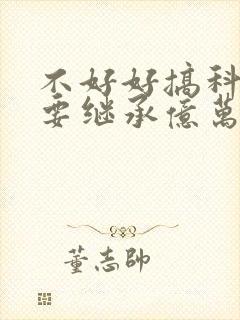 不好好搞科
要继承億萬
董志帥